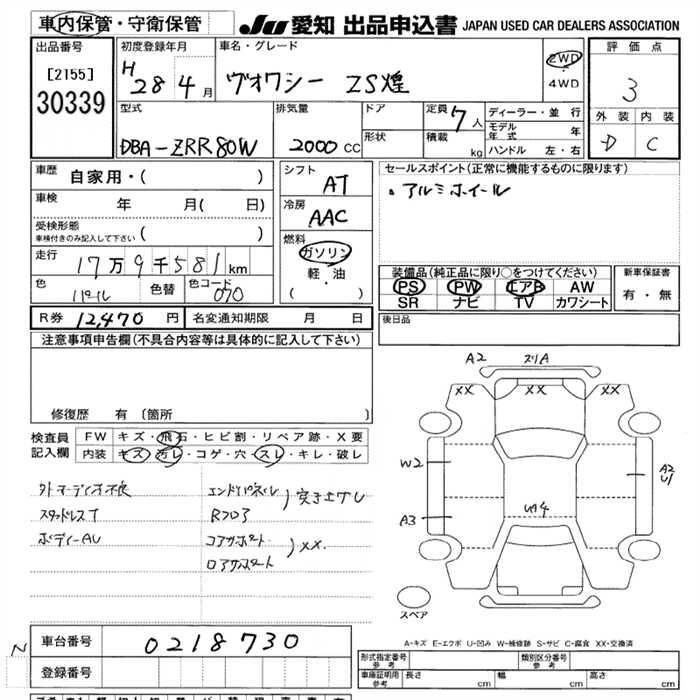 車内保管・守衛保管 JU 愛知 出品申込書 JAPAN USED CAR DEALERS ASSOCIATION
出品番号 初度登録年月 車名・グレード 2WD・4WD 評価点
[2155] H 28年 4月 ヴオクシー ZS煌 3
30339 外装 内装
D C
型式 排気量 ドア 定員 7人 ディーラー・並行
DBA-ZRR80W 2000 CC 形状 積載 kg モデル年式 年
ハンドル 左・右
車歴 自家用・( ) シフト AT セールスポイント(正常に機能するものに限ります)
車検 年 月( 日) 冷房 AAC 。アルミホイール
受検形態
車検付きのみ記入して下さい ( ) 燃料
走行 17万9千581km ガソリン
軽・油
( ・ )
色 パール 色替 色コード 070
装備品(純正品に限り○をつけてください) 新車保証書
PS PW エアB AW 有・無
SR ナビ TV カワシート
R券 12,470 円 名変通知期限 月 日 後日品
注意事項申告欄(不具合内容等は具体的に記入して下さい)
修復歴 有 〔箇所 〕
検査員記入欄 FW キズ・飛石・ヒビ割・リペア跡・X要
内装 キズ・汚レ・コゲ・穴・スレ・キレ・破レ
外オーディオ不良 エンドパネル 突き上げし
スタッドレスT Rフロア
ボディーAU コアサポート XX
ロアサポート
A2 スリA
XX XX XX
W2 A2 U1
A3 U14
スペア
A-キズ E-エクボ U-凹み W-補修跡 S-サビ C-腐食 XX-交換済
N 車台番号 0218730
登録番号
形式指定番号 参考 類別区分番号 参考
車庫証明用 参考 長さ cm 幅 cm 高さ cm